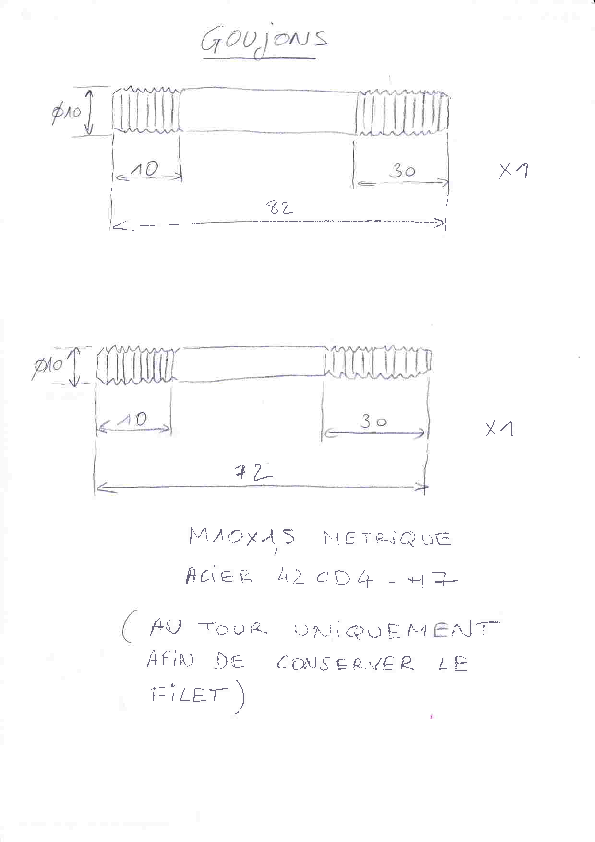 GOUJONS
φ10
10
30
X1
82
φ10
10
30
X1
72
M10X1,5 METRIQUE
ACIER 42 CD4 - H7
(AU TOUR UNIQUEMENT
AFIN DE CONSERVER LE
FILET)